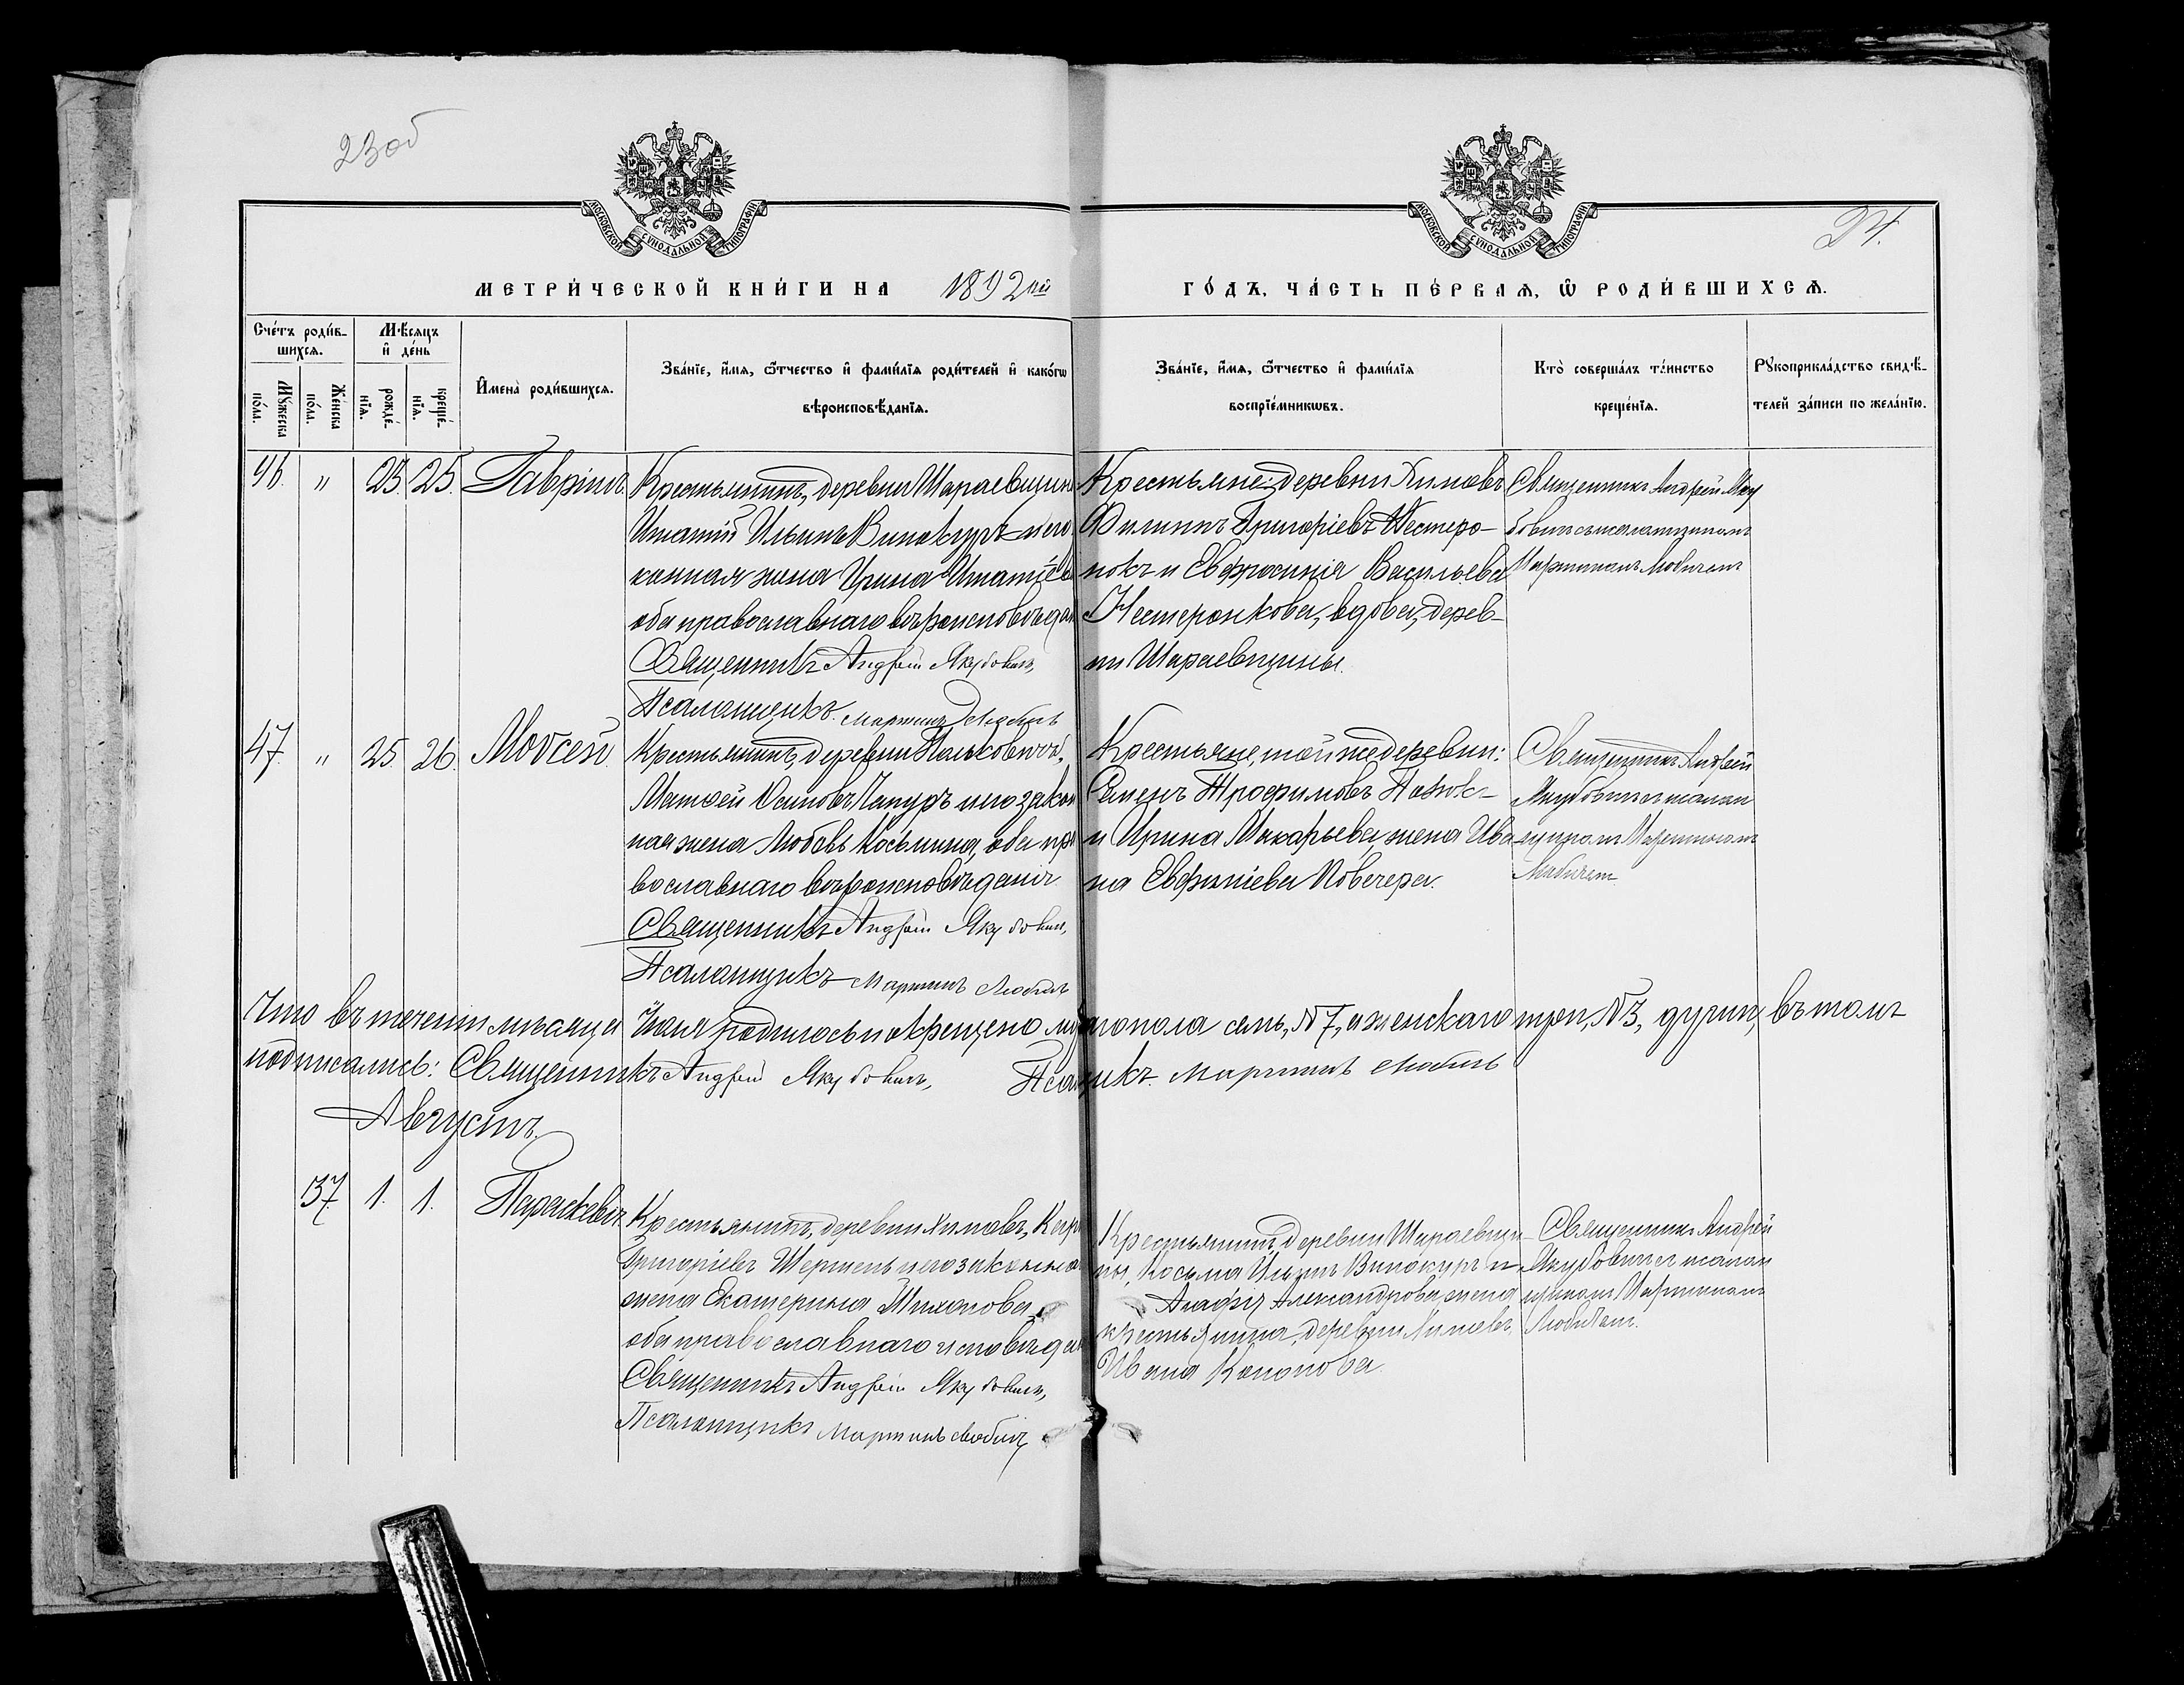 23об
24.
МОСКОВСКОЙ СѴНОДАЛЬНОЙ ТИПОГРАФІИ
МОСКОВСКОЙ СѴНОДАЛЬНОЙ ТИПОГРАФІИ
МЕТРИ́ЧЕСКОЙ КНИ́ГИ НА 1892ый ГО́ДЪ, ЧА́СТЬ ПЕ́РВАѦ, Ѡ РОДИ́ВШИХСѦ.
Сче́тъ роди́в-
шихсѧ.
Мꙋжеска
по́ла.
Же́нска
по́ла.
Мѣ́сѧцъ
и҆ де́нь
рожде́-
нїѧ.
креще́-
нїѧ.
И҆мена̀ роди́вшихсѧ.
Зва́нїе, и҆́мѧ, ѻ҆́тчество и҆ фами́лїѧ роди́телей и҆ како́гѡ
вѣроисповѣ́данїѧ.
Зва́нїе, и҆́мѧ, ѻ҆́тчество и҆ фами́лїѧ
воспрїе́мникѡвъ.
Кто̀ соверша́лъ та́инство
креще́нїѧ.
Рꙋкоприкла́дство свидѣ́-
телей за́писи по жела́нїю.
46. " 23. 25. Гавріилъ.
Крестьянинъ, деревни Шараевщины
Игнатій Ильинъ Винокуръ и его
конная жена Ирина Игнатіева
оба православнаго вѣроисповѣдан
Священникъ Андрей Якубовичъ,
Псаломщикъ. Мартинъ Любичъ
Крестьяне: деревни Химовъ
Филиппъ Григоріевъ Нестеро-
нокъ и Евфросинія Васильева
Нестеронкова, вдова, дерев-
ни Шараевщины.
Священникъ Андрей Яку
бовичъ съ псаломщикомъ
Мартиномъ Любичемъ
47. " 25. 26. Моѵсей
Крестьянинъ, деревни
Матѳей Осиповъ и его закон
ная жена Любовь Косьмина, оба пра
вославнаго вѣроисповѣданія
Священникъ Андрей Якубовичъ,
Псаломщикъ Мартинъ Любичъ
Крестьяне, той же деревни:
Семенъ Трофимовъ
и Ирина Макарьева, жена Ива
на Евфиміева Повечера.
Священникъ Андрей
Якубовичъ съ псалом
щикомъ Мартиномъ
Любичемъ
Что въ теченіи мѣсяца Іюля родилось и окрещено му агопола семь, N7, а женскаго три, N3, душъ, въ томъ
подписались: Священникъ Андрей Якубовичъ, Псал щикъ. Мартинъ Любичъ
Августъ.
37. 1. 1. Параскева
Крестьянинъ, деревни Химовъ, Карп
Григоріевъ Шершень и его законная
жена Екатерина Тихонова,
оба православнаго исповѣдан
Священникъ Андрей Якубовичъ,
Псаломщикъ Мартинъ Любичъ
Крестьянинъ, деревни Шараевщи-
ны, Косьма Ильинъ Винокуръ и
Агафія Александрова, жена
крестьянина, деревни Химовъ,
Ивана Кононова.
Священникъ Андрей
Якубовичъ съ псалом
щикомъ Мартиномъ
Любичемъ.